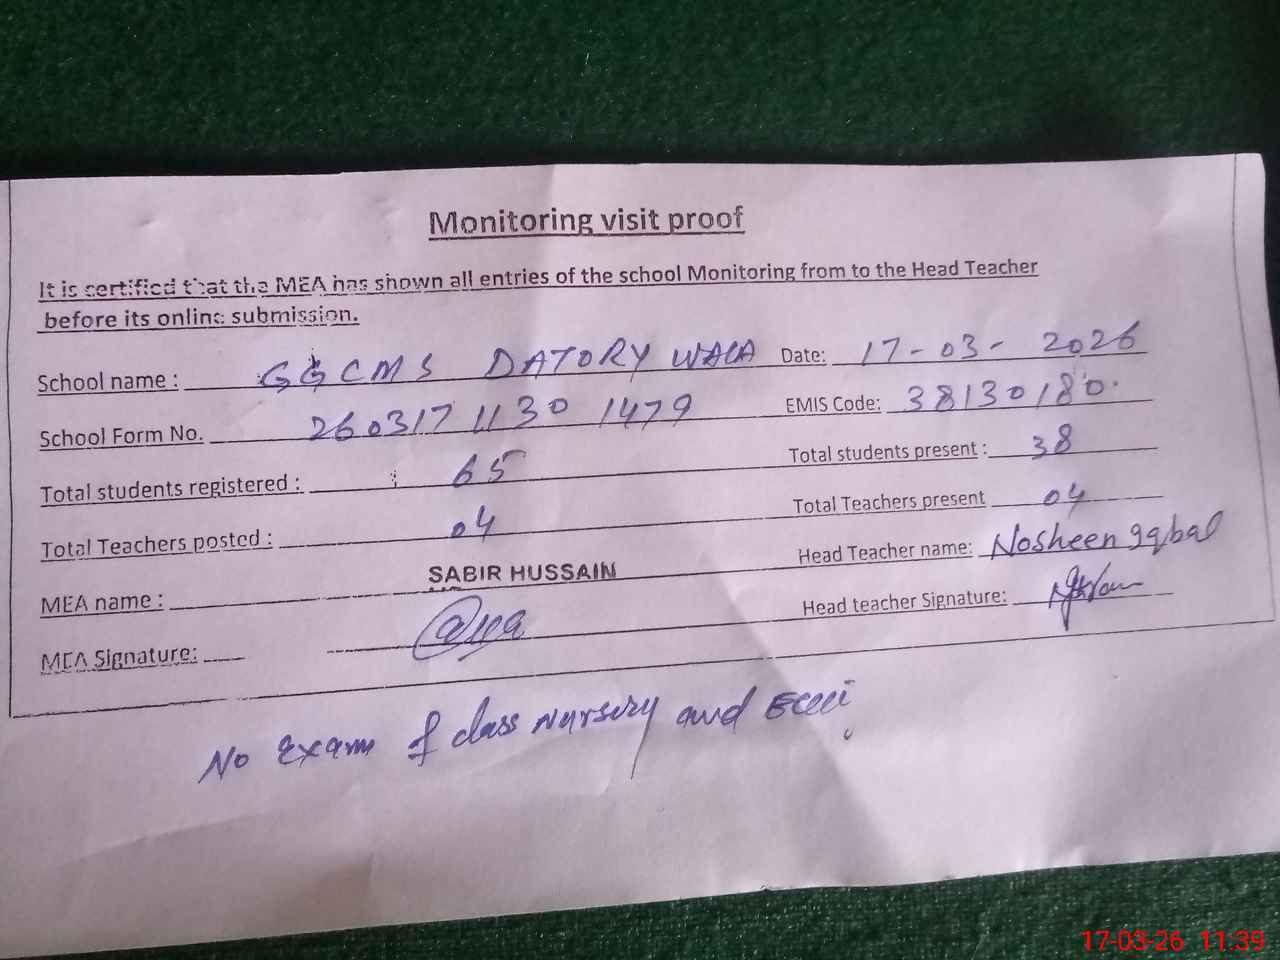 Monitoring visit proof
It is certified that the MEA has shown all entries of the school Monitoring from to the Head Teacher
before its online submission.
School name : GGCMS DATORY WALA Date: 17-03-2026
School Form No. 260317 1130 1479 EMIS Code: 38130180
Total students registered : 65 Total students present : 38
Total Teachers posted : 04 Total Teachers present 04
MEA name : SABIR HUSSAIN Head Teacher name: Nosheen Iqbal
MEA Signature: Head teacher Signature:
No Exam of class Nursery and
17-03-26 11:39